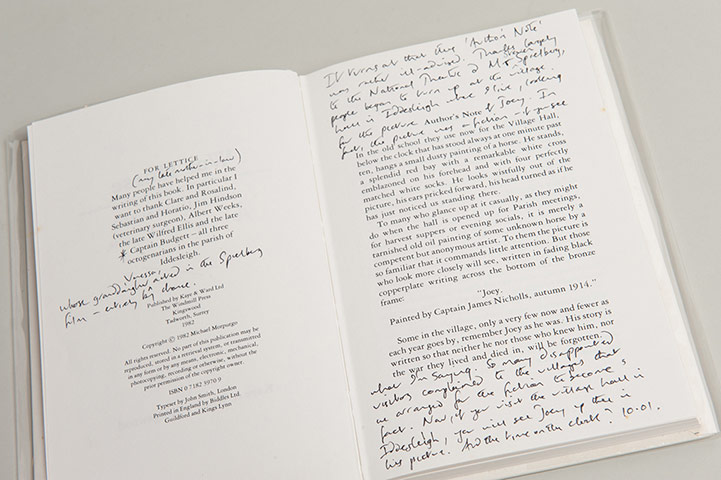 FOR LETTICE
(my late mother-in-law)
Many people have helped me in the
writing of this book. In particular I
want to thank Clare and Rosalind,
Sebastian and Horatio, Jim Hindson
(veterinary surgeon), Albert Weeks,
the late Wilfred Ellis and the late
* Captain Budgett – all three
octogenarians in the parish of
Iddesleigh.
Vanessa,
whose granddaughter worked in the Spielberg
film – entirely by chance.
Published by Kaye & Ward Ltd
The Windmill Press
Kingswood
Tadworth, Surrey
1982
Copyright © 1982 Michael Morpurgo
All rights reserved. No part of this publication may be
reproduced, stored in a retrieval system, or transmitted
in any form or by any means, electronic, mechanical,
photocopying, recording or otherwise, without the
prior permission of the copyright owner.
ISBN 0 7182 3970 9
Typeset by John Smith, London
Printed in England by Biddles Ltd.
Guildford and Kings Lynn
It turns out that this 'Author's Note'
was rather ill-advised. Thanks largely
to the National Theatre & Mr Steven Spielberg,
people began to turn up at the village
hall in Iddesleigh where I live, looking
for the picture of Joey. In
fact, the picture was a fiction – if you see
Author's Note
In the old school they use now for the Village Hall,
below the clock that has stood always at one minute past
ten, hangs a small dusty painting of a horse. He stands,
a splendid red bay with a remarkable white cross
emblazoned on his forehead and with four perfectly
matched white socks. He looks wistfully out of the
picture, his ears pricked forward, his head turned as if he
has just noticed us standing there.
To many who glance up at it casually, as they might
do when the hall is opened up for Parish meetings,
for harvest suppers or evening socials, it is merely a
tarnished old oil painting of some unknown horse by a
competent but anonymous artist. To them the picture is
so familiar that it commands little attention. But those
who look more closely will see, written in fading black
copperplate writing across the bottom of the bronze
frame:
"Joey.
Painted by Captain James Nicholls, autumn 1914."
Some in the village, only a very few now and fewer as
each year goes by, remember Joey as he was. His story is
written so that neither he nor those who knew him, nor
the war they lived and died in, will be forgotten.
what I'm saying. So many disappointed
visitors complained to the villagers that
we arranged for the fiction to become
fact. Now if you visit the village hall in
Iddesleigh, you will see Joey up there in
his picture. And the time on the clock? 10.01.